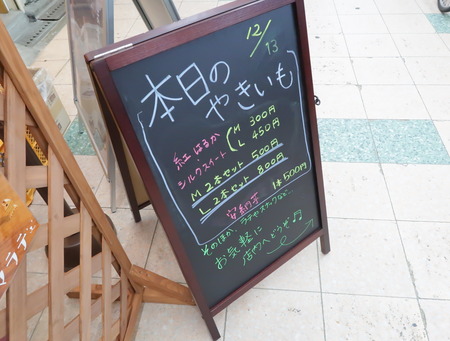 12/13
本日の
やきいも
紅はるか M 300円
シルクスイート L 450円
M 2本セット 500円
L 2本セット 800円
安納芋 1本500円
そのほか、ラテやスナックなど…
お気軽に
店内へどうぞ♫